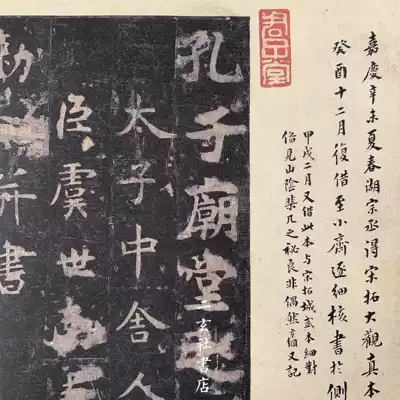 嘉慶辛未夏春湖宗丞得宋拓大觀真本
癸酉十二月復借至小齋逐細核書於側
甲戌二月又借此本与宋拓城武本細對
見山陰棐几之秘良非偶然方綱又記
孔子廟堂之
太子中舍人
臣虞世南
勑并書
二玄社書店